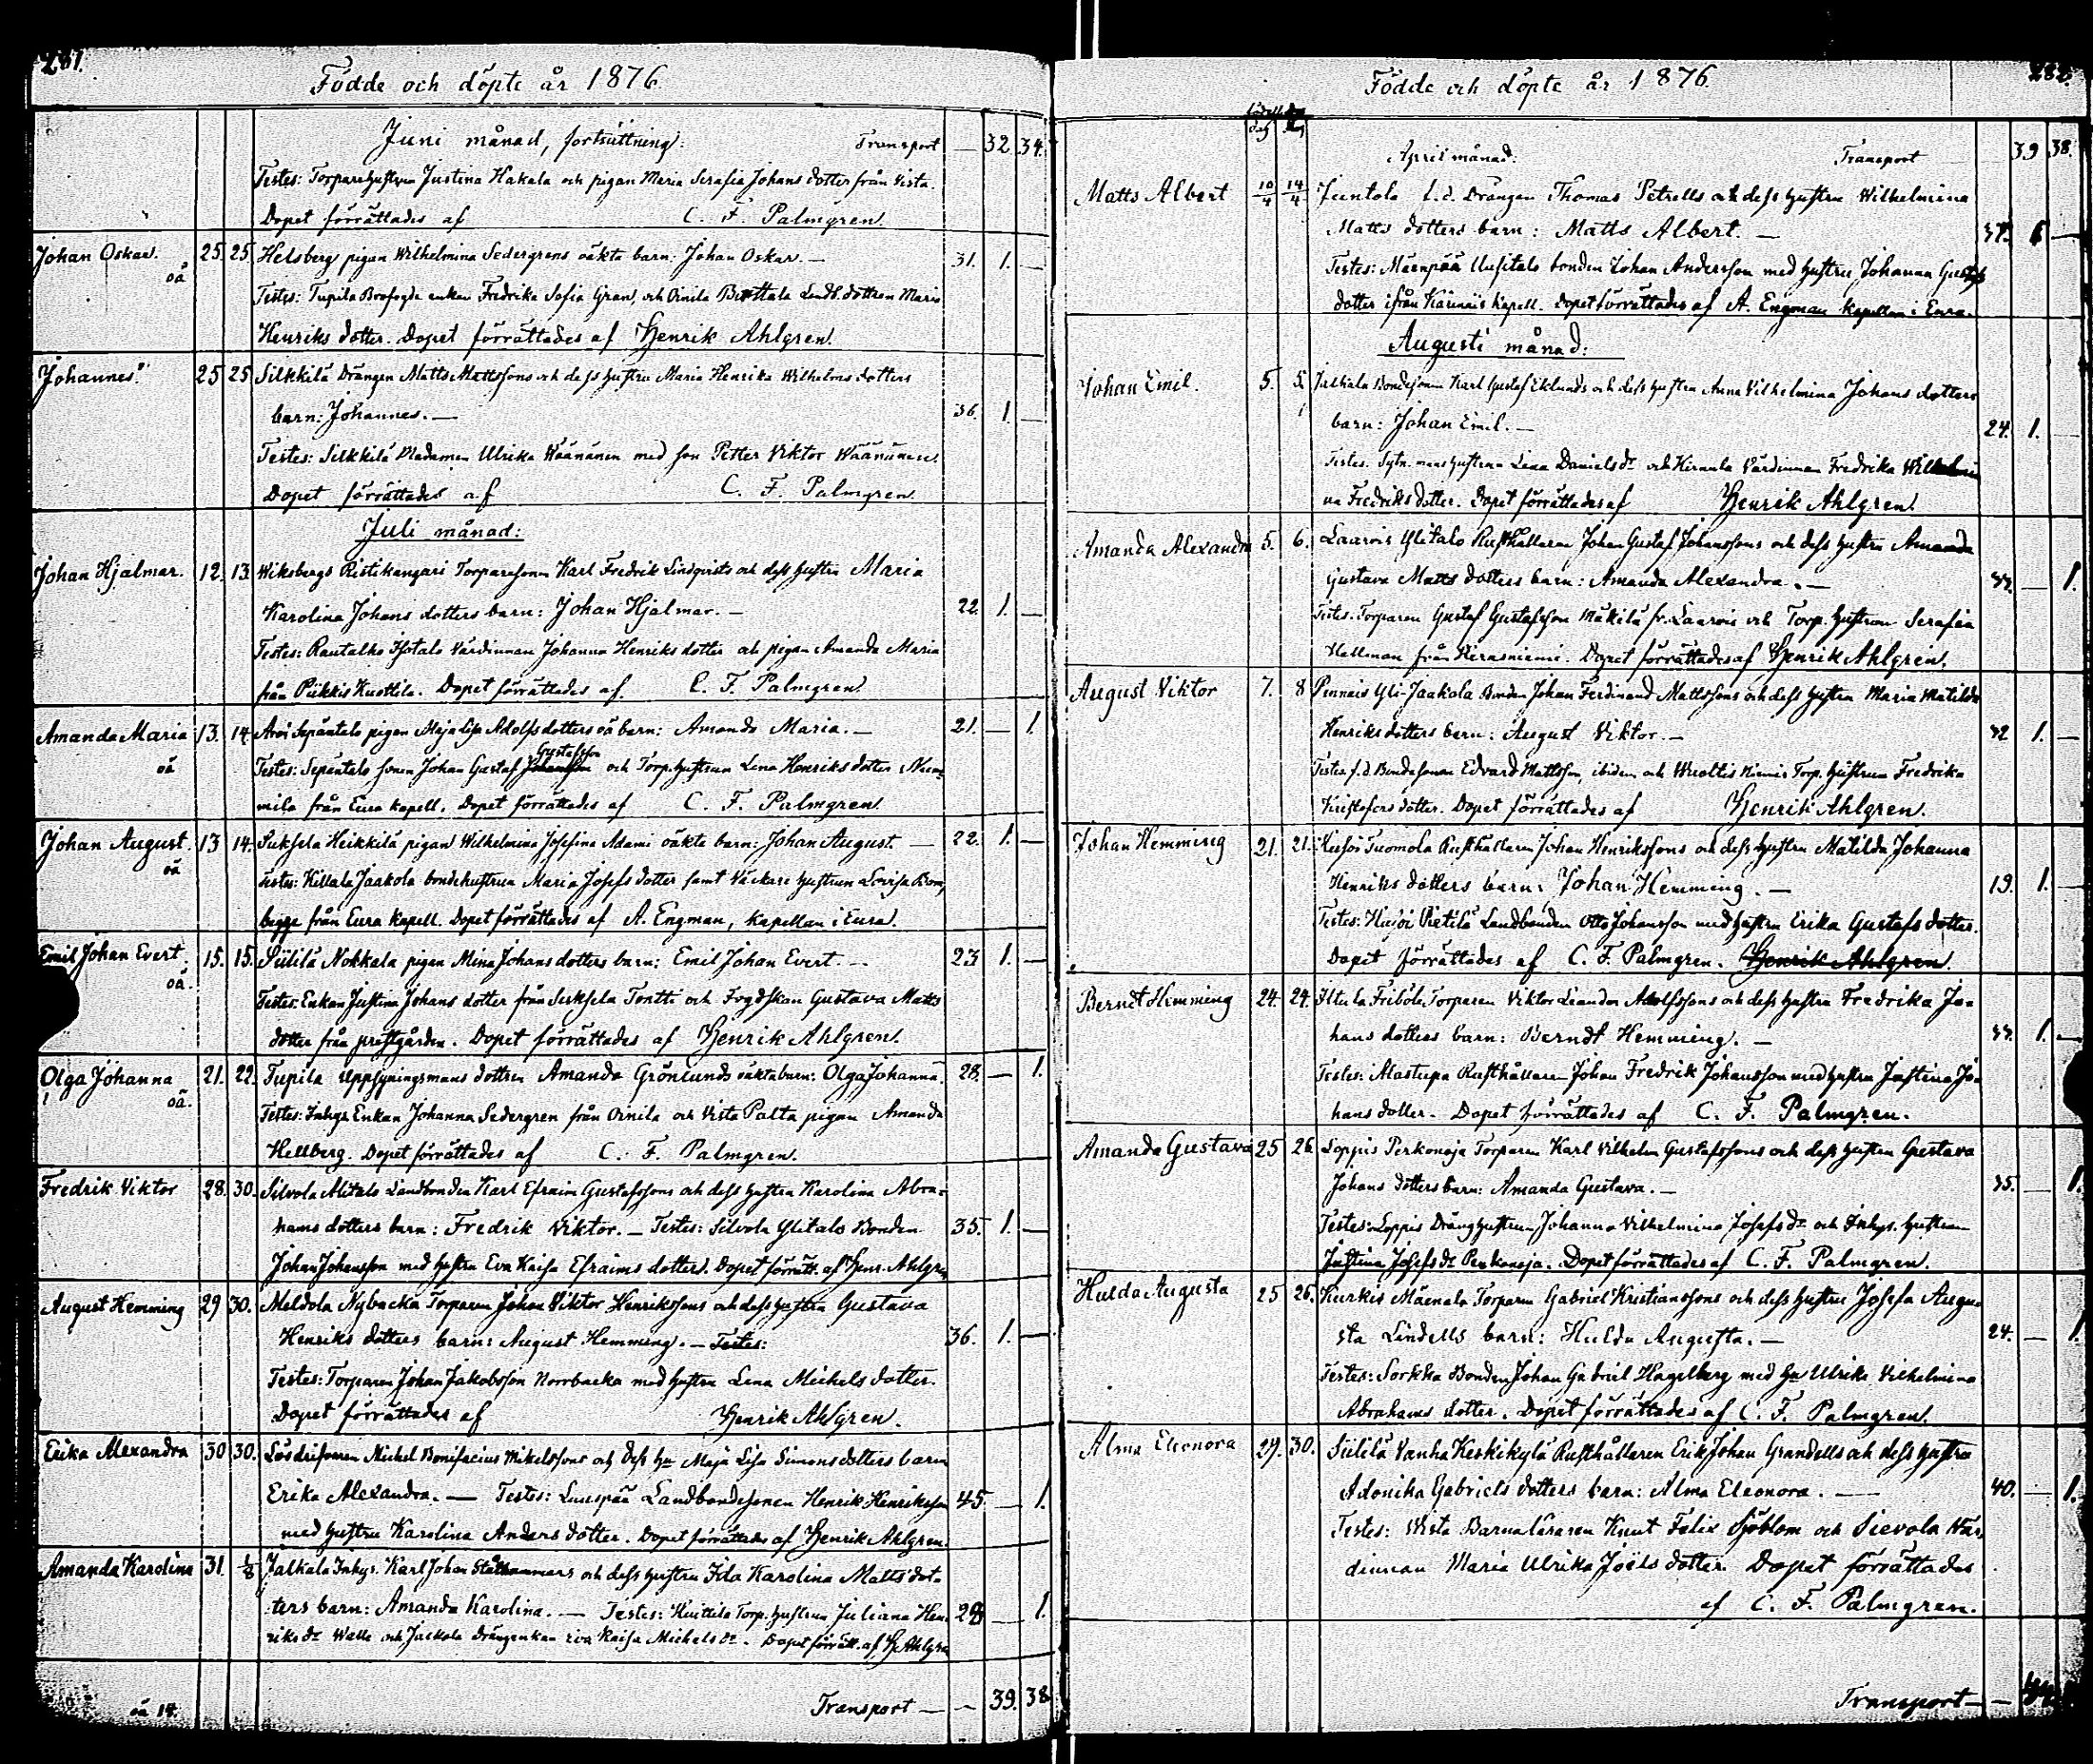 281.
Födde och döpte år 1876.
Juni månad, fortsättning: Transport — 32. 34.
Testes: Torparehustrun Justina Hakala och pigan Maria Serafia Johans dotter från Vista.
Dopet förrättades af C. F. Palmgren.
Johan Oskar. 25. 25. Helsberg pigan Wilhelmina Sedergrens oäkta barn: Johan Oskar. — 31. 1. —
oä
Testes: Tupila Brofogde enkan Fredrika Sofia Gran, och Ornila Landb. dottren Maria
Henriks dotter. Dopet förrättades af Henrik Ahlgren.
Johannes. 25 25 Silkkilä Drängen Matts Mattssons och dess hustru Maria Henrika Wilhelms dotters
barn: Johannes. — 36. 1. —
Testes: Silkkilä Madamen Ulrika Wäänänen med son Petter Viktor Wäänänen.
Dopet förrättades af C. F. Palmgren.
Juli månad:
Johan Hjalmar. 12. 13. Wiksbergs Ristikangari Torparesonen Karl Fredrik Lindqvists och dess hustru Maria
Karolina Johans dotters barn: Johan Hjalmar. — 22. 1. —
Testes: Rautalko Isotalo Värdinnan Johanna Henriks dotter och pigan Amanda Maria
från Piikkis Kuottila. Dopet förrättades af C. F. Palmgren.
Amanda Maria 13. 14. Arvi Sepäntalo pigan Maja Lisa Adolfs dotters oä barn: Amanda Maria. — 21. — 1.
oä
Gustafsson
Testes: Sepäntalo sonen Johan Gustaf Johansson och Torp. hustrun Lena Henriks dotter Num-
mila från Eura kapell. Dopet förrättades af C. F. Palmgren.
Johan August. 13 14. Suksela Heikkilä pigan Wilhelmina Josefina Adami oäkta barn: Johan August. — 22. 1. —
oä
Testes: Killala Jaakola bondehustrun Maria Josefs dotter samt Väckare hustrun Lovisa Bom,
begge från Eura kapell. Dopet förrättades af A. Engman, kapellan i Eura.
Emil Johan Evert. 15. 15. Siililä Nokkala pigan Mina Johans dotters barn: Emil Johan Evert. — 23 1. —
oä.
Testes: Enkan Justina Johans dotter från Suksela Tontti och Fogdskan Gustava Matts
dotter från prestgården. Dopet förrättades af Henrik Ahlgren.
Olga Johanna 21. 22. Tupila Uppsyningsmans dottren Amanda Grönlunds oäkta barn: Olga Johanna. 28. — 1.
oä.
Testes: Inhys Enkan Johanna Sedergren från Ornila och Vista Palta pigan Amanda
Hellberg. Dopet förrättades af C. F. Palmgren.
Fredrik Viktor 28. 30. Silvola Alitalo Landbonden Karl Efraim Gustafssons och dess hustru Karolina Abra-
hams dotters barn: Fredrik Viktor. — Testes: Silvola Ylitalo Bonden 35. 1. —
Johan Johansson med hustru Eva Kaisa Efraims dotter. Dopet förrätt. af Henr. Ahlgren
August Hemming 29 30. Meldola Nybacka Torparen Johan Viktor Henrikssons och dess hustru Gustava
Henriks dotters barn: August Hemming. — Testes: 36. 1. —
Testes: Torparen Johan Jakobsson Norrbacka med hustru Lena Michels dotter.
Dopet förrättades af Henrik Ahlgren.
Erika Alexandra 30 30. Lösdrifvaren Michel Bonifacius Mikelssons och dess hu Maja Lisa Simonsdotters barn
Erika Alexandra. — Testes: Landbondesonen Henrik Henriksson 45. — 1.
med hustru Karolina Anders dotter. Dopet förrättades af Henrik Ahlgren.
Amanda Karolina 31. 1/8 Jalkala Inhys. Karl Johan Stålhammars och dess hustru Ida Karolina Matts dot-
ters barn: Amanda Karolina. — Testes: Kuittila Torp. hustrun Juliana Hen- 28 — 1.
riks dr Walle och Jaakola Drängenkan Eva Kaisa Michels dr. Dopet förrätt. af H. Ahlgren
oä 14. Transport — — 39. 38
282.
Födde och döpte år 1876.
April månad: Transport 39 38.
Matts Albert 10/4 14/4 Juntola f. d. Drängen Thomas Petrells och dess hustru Wilhelmina
Matts dotters barn: Matts Albert. — 37. 1 —
Testes: Mäenpää Uusitalo bonden Johan Andersson med hustru Johanna Gustafs
dotter ifrån Kiukais kapell. Dopet förrättades af A. Engman kapellan i Eura.
Augusti månad:
Johan Emil. 5. 5. Jalkala Bondesonen Karl Gustaf Eklunds och dess hustru Anna Vilhelmina Johans dotters
barn: Johan Emil. — 24. 1. —
Testes: Sytn. manshustrun Lena Daniels dr och Hirvula Värdinnan Fredrika Wilhelmi-
na Fredriks dotter. Dopet förrättades af Henrik Ahlgren.
Amanda Alexandra 5. 6. Laarois Ylitalo Rusthållaren Johan Gustaf Johanssons och dess hustru Amanda
Gustava Matts dotters barn: Amanda Alexandra. — — 1.
Testes: Torparen Gustaf Gustafsson Mäkilä fr. Laarois och Torp. hustrun Serafia
Hellman från Hirvasniemi. Dopet förrättades af Henrik Ahlgren.
August Viktor 7. 8 Pinnais Yli-Jaakola Bonden Johan Ferdinand Mattssons och dess hustru Maria Matilda
Henriks dotters barn: August Viktor. — 32 1. —
Testes f. d. Bondesonen Edvard Mattsson, ibidem och Wuoltis Niemis Torp. hustrun Fredrika
Kristofers dotter. Dopet förrättades af Henrik Ahlgren.
Johan Hemming 21. 21. Huhoi Tuomola Rusthållaren Johan Henrikssons och dess hustru Matilda Johanna
Henriks dotters barn: Johan Hemming. — 19. 1. —
Testes: Pietilä Landbonden Otto Johansson med hustru Erika Gustafs dotter.
Dopet förrättades af C. F. Palmgren. Henrik Ahlgren.
Berndt Hemming 24. 24. Iltula Friböle Torparen Viktor Leander Adolfssons och dess hustru Fredrika Jo-
hans dotters barn: Berndt Hemming. — 1. —
Testes: Alastupa Rusthållaren Johan Fredrik Johansson med hustru Justina Jo-
hans dotter. Dopet förrättades af C. F. Palmgren.
Amanda Gustava 25 26 Loppis Perkonoja Torparen Karl Vilhelm Gustafssons och dess hustru Gustava
Johans dotters barn: Amanda Gustava. — 35. — 1.
Testes: Loppis Dränghustrun Johanna Vilhelmina Josefs dr och Inhys. hustrun
Justina Josefs dr Perkonoja. Dopet förrättades af C. F. Palmgren.
Hulda Augusta 25 26. Kurkis Mäenala Torparen Gabriel Kristianssons och dess hustru Josefa Augu-
sta Lindells barn: Hulda Augusta. — 24. — 1.
Testes: Sorkka Bonden Johan Gabriel Hagelberg med hu Ulrika Vilhelmina
Abrahams dotter. Dopet förrättades af C. F. Palmgren.
Alma Eleonora 29. 30. Siililä Vanha Keskikylä Rusthållaren Erik Johan Grandells och dess hustru
Adonika Gabriels dotters barn: Alma Eleonora. — 40. — 1.
Testes: Wista Barnaläraren Knut Felix Sjöblom och Sievola Vär-
dinnan Maria Ulrika Joëls dotter. Dopet förrättades
af C. F. Palmgren.
Transport — —